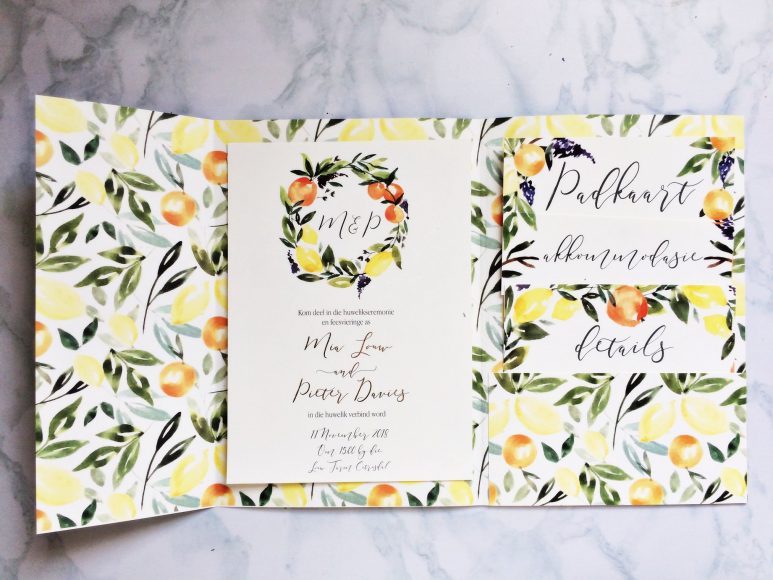 M&P
Kom deel in die huwelikseremonie
en feesvieringe as
Mia Louw
and
Pieter Davies
in die huwelik verbind word
11 November 2018
Om 15h by die
Low Farm Citrusdal
Padkaart
akkommodasie
details